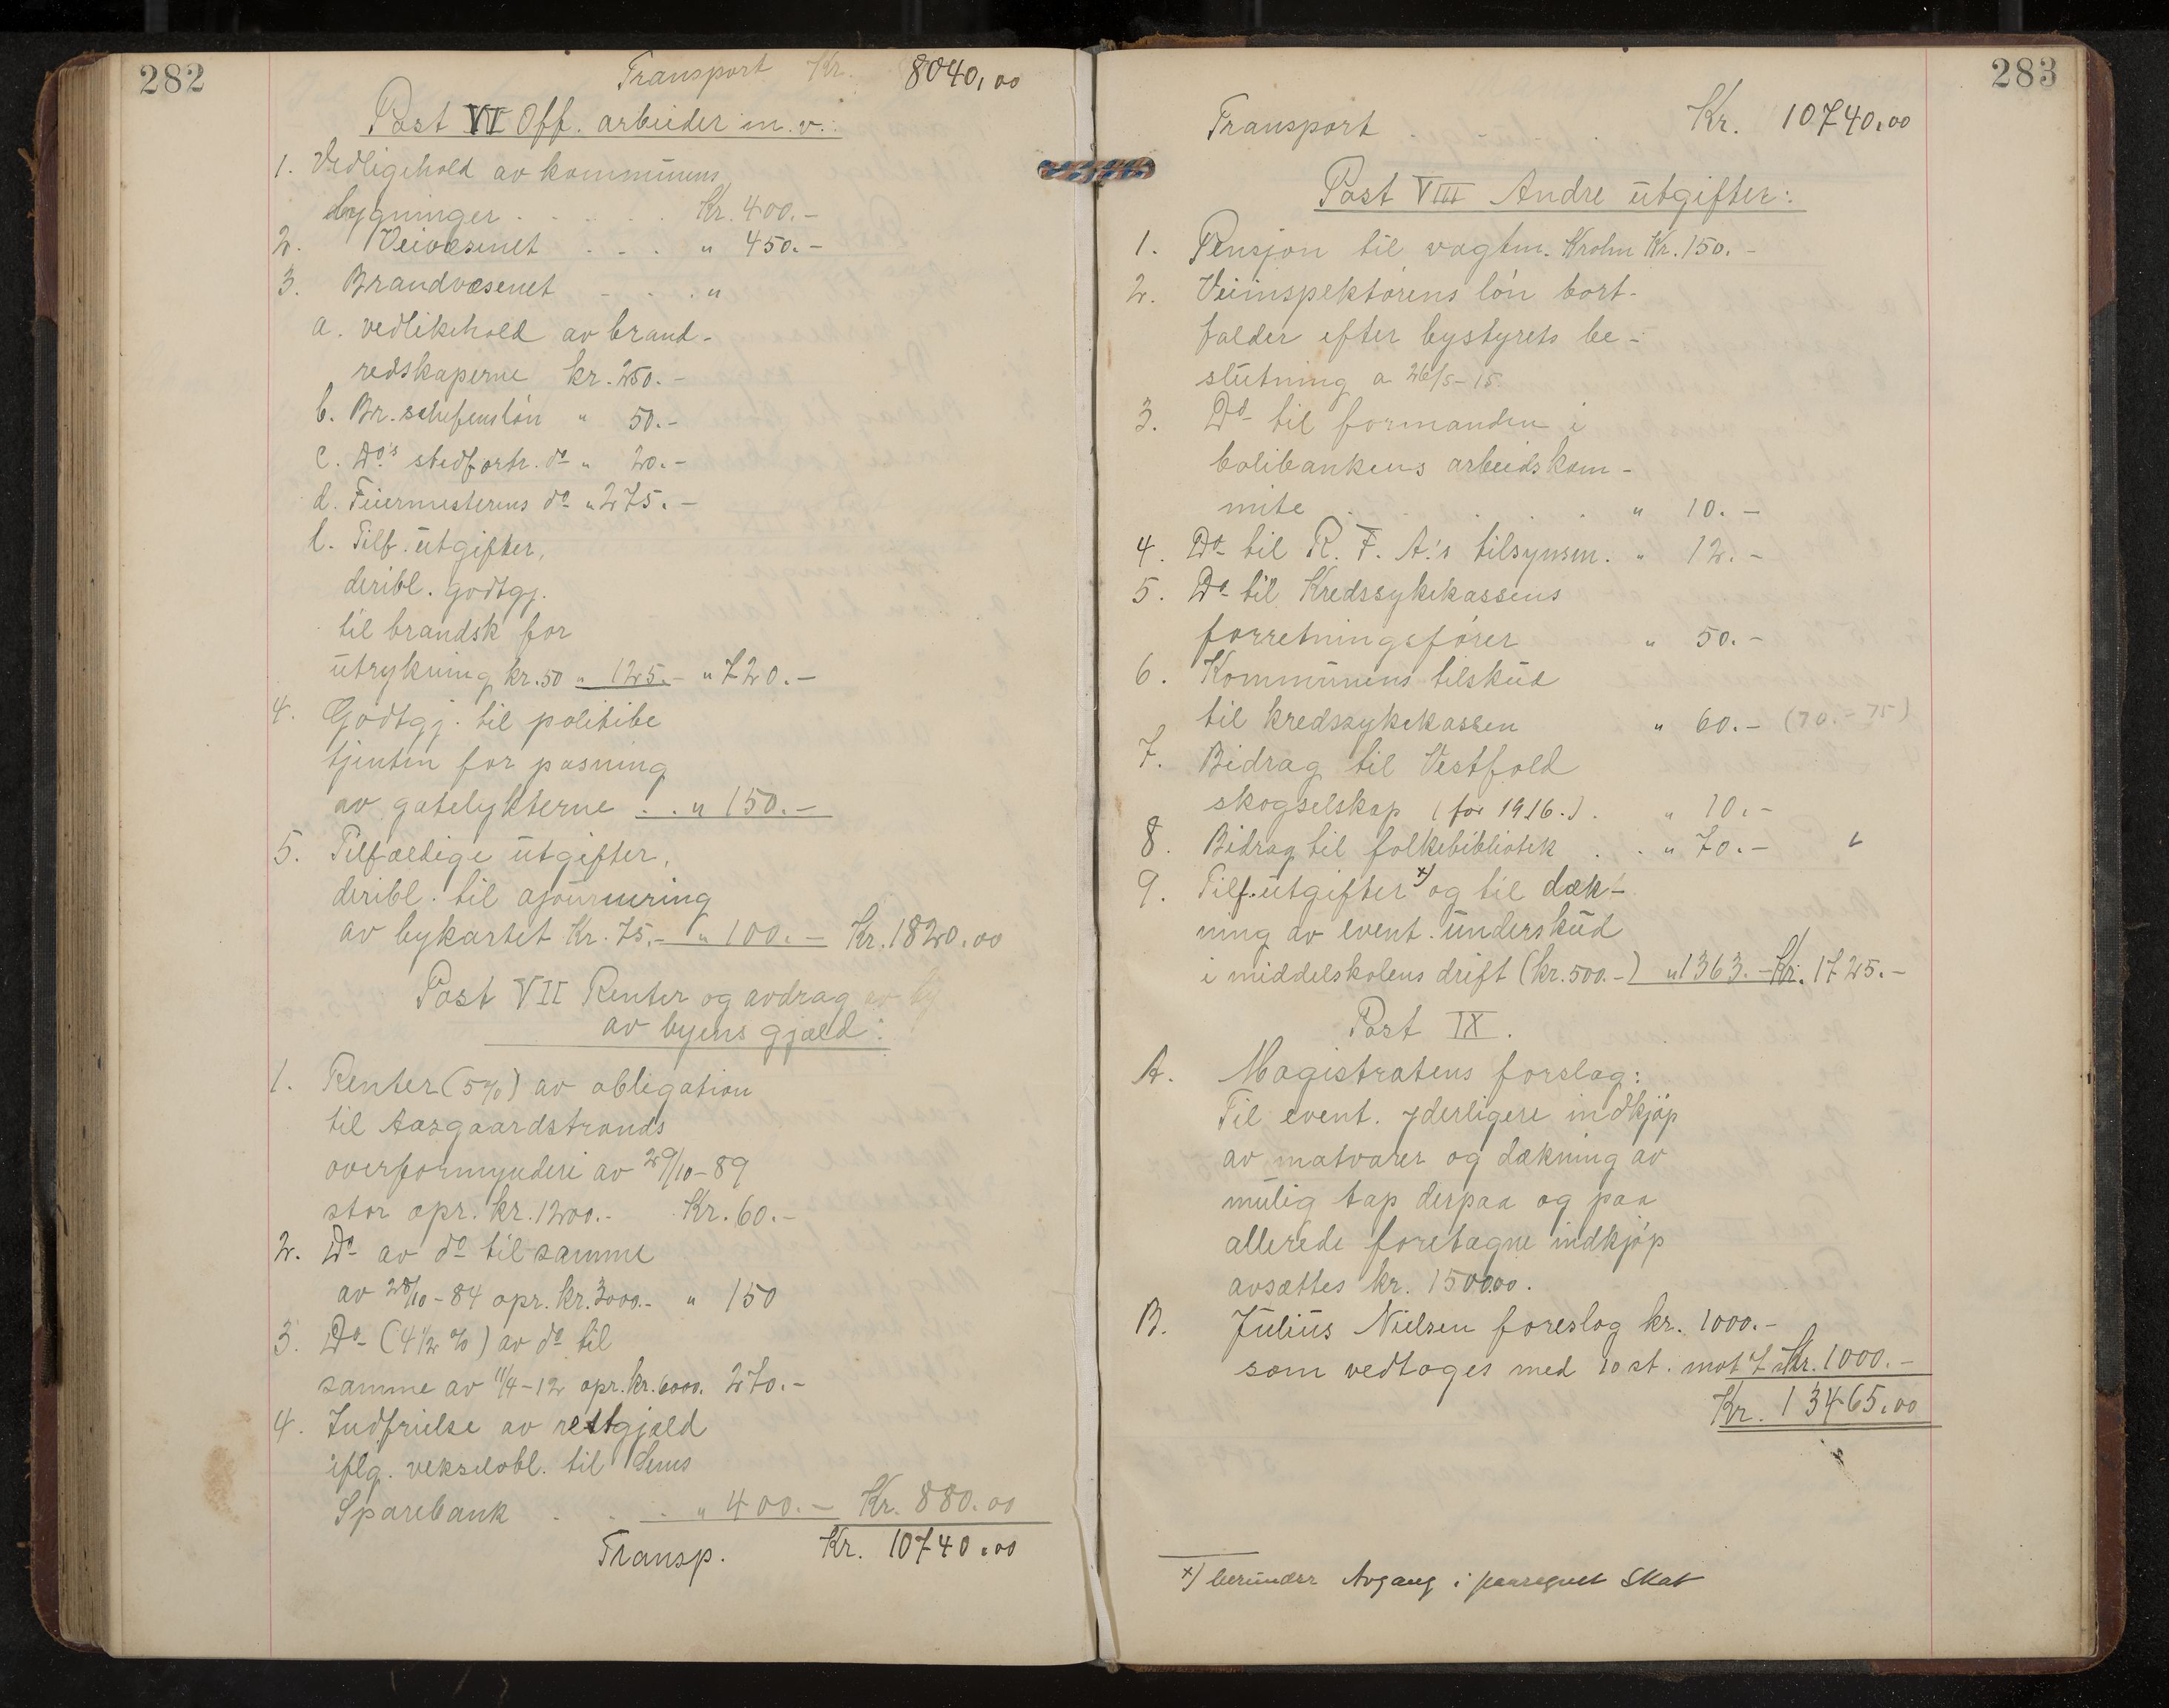 282
Transport Kr. 8040,00
Post VI Off. arbeider m. v.:
1. Vedligehold av kommunens
bygninger . . . . . Kr. 400.-
2. Veivæsenet . . . " 450.-
3. Brandvæsenet . . . "
a. vedlikehold av brand-
redskaperne kr. 250.-
b. Br. schefens løn " 50.-
c. Do's stedfortr. do " 20.-
d. Feiermesterens do " 275.-
e. Tilf. utgifter,
deribl. godtgj.
til brandsk for
utrykning kr. 50 " 125.- " 720.-
4. Godtgj. til politibe
tjenten for pasning
av gatelykterne . . " 150.-
5. Tilfældige utgifter,
deribl. til ajournering
av bykartet Kr. 75.- " 100.- Kr. 1820.00
Post VII Renter og avdrag av by
av byens gjæld:
1. Renter (5%) av obligation
til Aasgaardstrands
overformynderi av 29/10-89
stor opr. kr. 1200.- Kr. 60.-
2. Do av do til samme
av 28/10-84 opr. kr. 3000.- " 150
3. Do (4 1/2 %) av do til
samme av 11/4-12 opr. kr. 6000. 270.-
4. Indfrielse av restgjæld
iflg. vekselobl. til Sems
Sparebank . . . " 400.- Kr. 880.00
Transp. Kr. 10740.00
283
Transport Kr. 10740.00
Post VIII Andre utgifter:
1. Pensjon til vagtm. Krohn Kr. 150.-
2. Veiinspektørens løn bort-
falder efter bystyrets be-
slutning a 26/5-15.
3. Do til formanden i
bolibankens arbeidskom-
mite . . . . " 10.-
4. Do til R. F. A.'s tilsynsm. " 12.-
5. Do til Kredssykekassens
forretningsfører " 50.-
6. Kommunens tilskud
til kredssykekassen " 60.- (70.- 75)
7. Bidrag til Vestfold
skogselskap (for 1916.) . " 10.-
8. Bidrag til folkebibliotek . . " 70.-
9. Tilf. utgifter x) og til dæk-
ning av event. underskud
i middelskolens drift (kr. 500.-) " 1363.- Kr. 1725.-
Post IX.
A. Magistratens forslag:
Til event. yderligere indkjøp
av matvarer og dækning av
mulig tap derpaa og paa
allerede foretagne indkjøp
avsættes kr. 1500.00.
B. Julius Nielsen foreslog kr. 1000.-
som vedtoges med 10 st. mot 7 Kr. 1000.-
Kr. 13465.00
x) herunder Avgang i paaregnet Skat